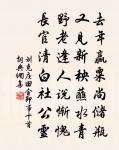 去年贏粟尚儲瓶
又見新秧蘸水青
野老逢人說慚愧
長官清白社公靈
劉克庄田舍即事十首
詞典網集